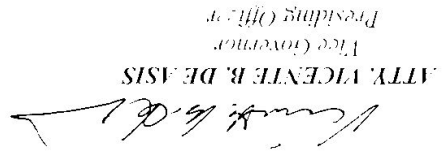 ATTY. VICENTE B. DE ASIS
Vice Governor
Presiding Officer